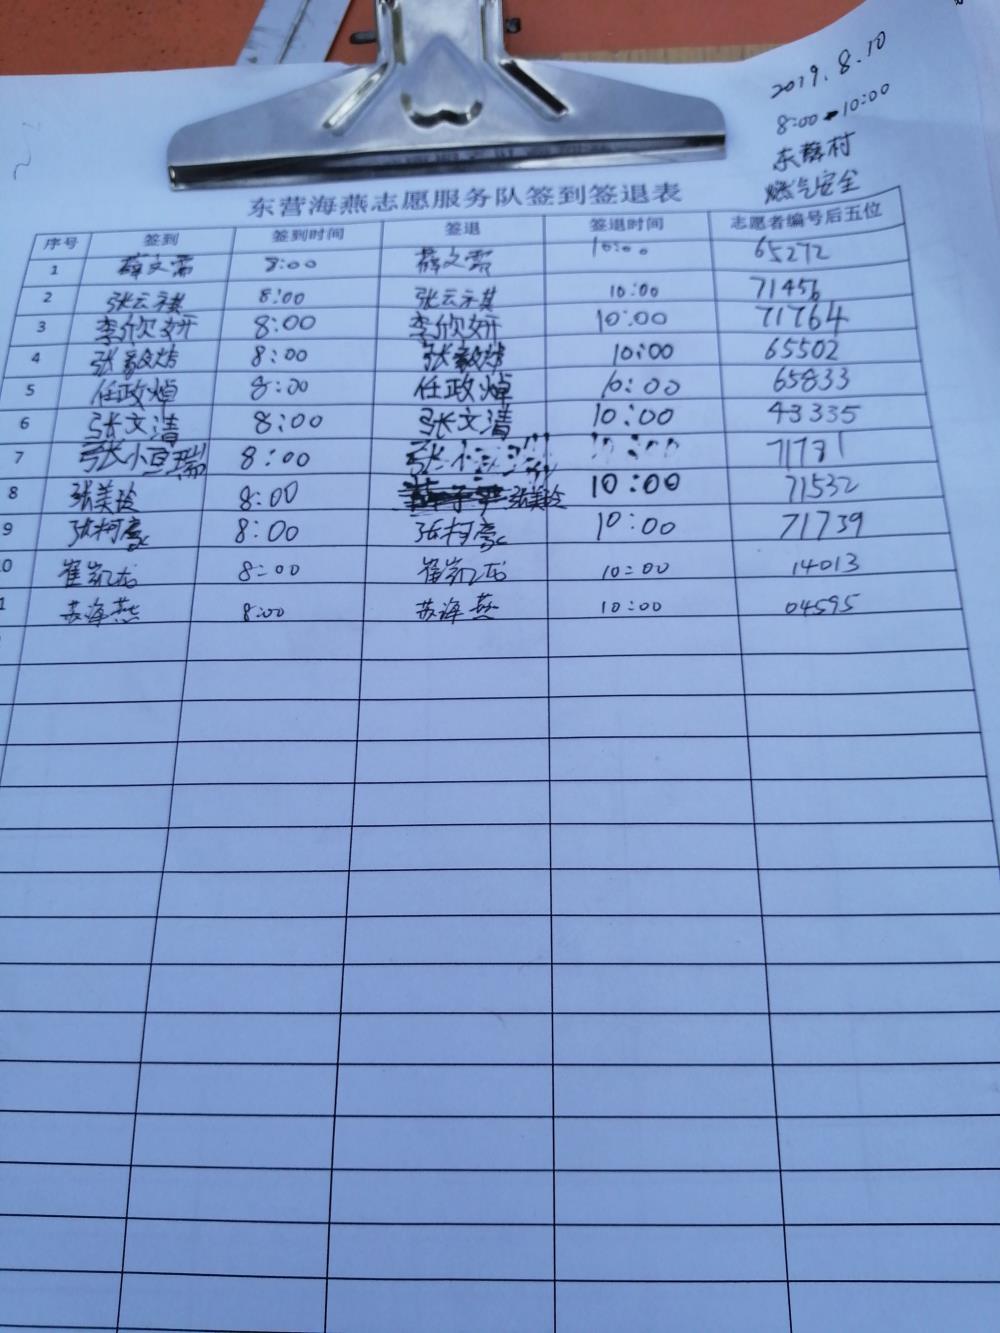 2019.8.10
8:00-10:00
东薛村
燃气安全
东营海燕志愿服务队签到签退表
序号 签到 签到时间 签退 签退时间 志愿者编号后五位
1 薛文需 8:00 薛文需 10:00 65272
2 张云祺 8:00 张云祺 10:00 71456
3 李欣妍 8:00 李欣妍 10:00 71764
4 张毅 8:00 张毅 10:00 65502
5 任政焯 8:00 任政焯 10:00 65833
6 张文清 8:00 张文清 10:00 43335
7 张小豆瑞 8:00 张小 10:00
8 张美玲 8:00 张美玲 10:00 71532
9 张柯豪 8:00 张柯豪 10:00 71739
0 崔凯龙 8:00 崔凯龙 10:00 14013
1 苏海燕 8:00 苏海燕 10:00 04595